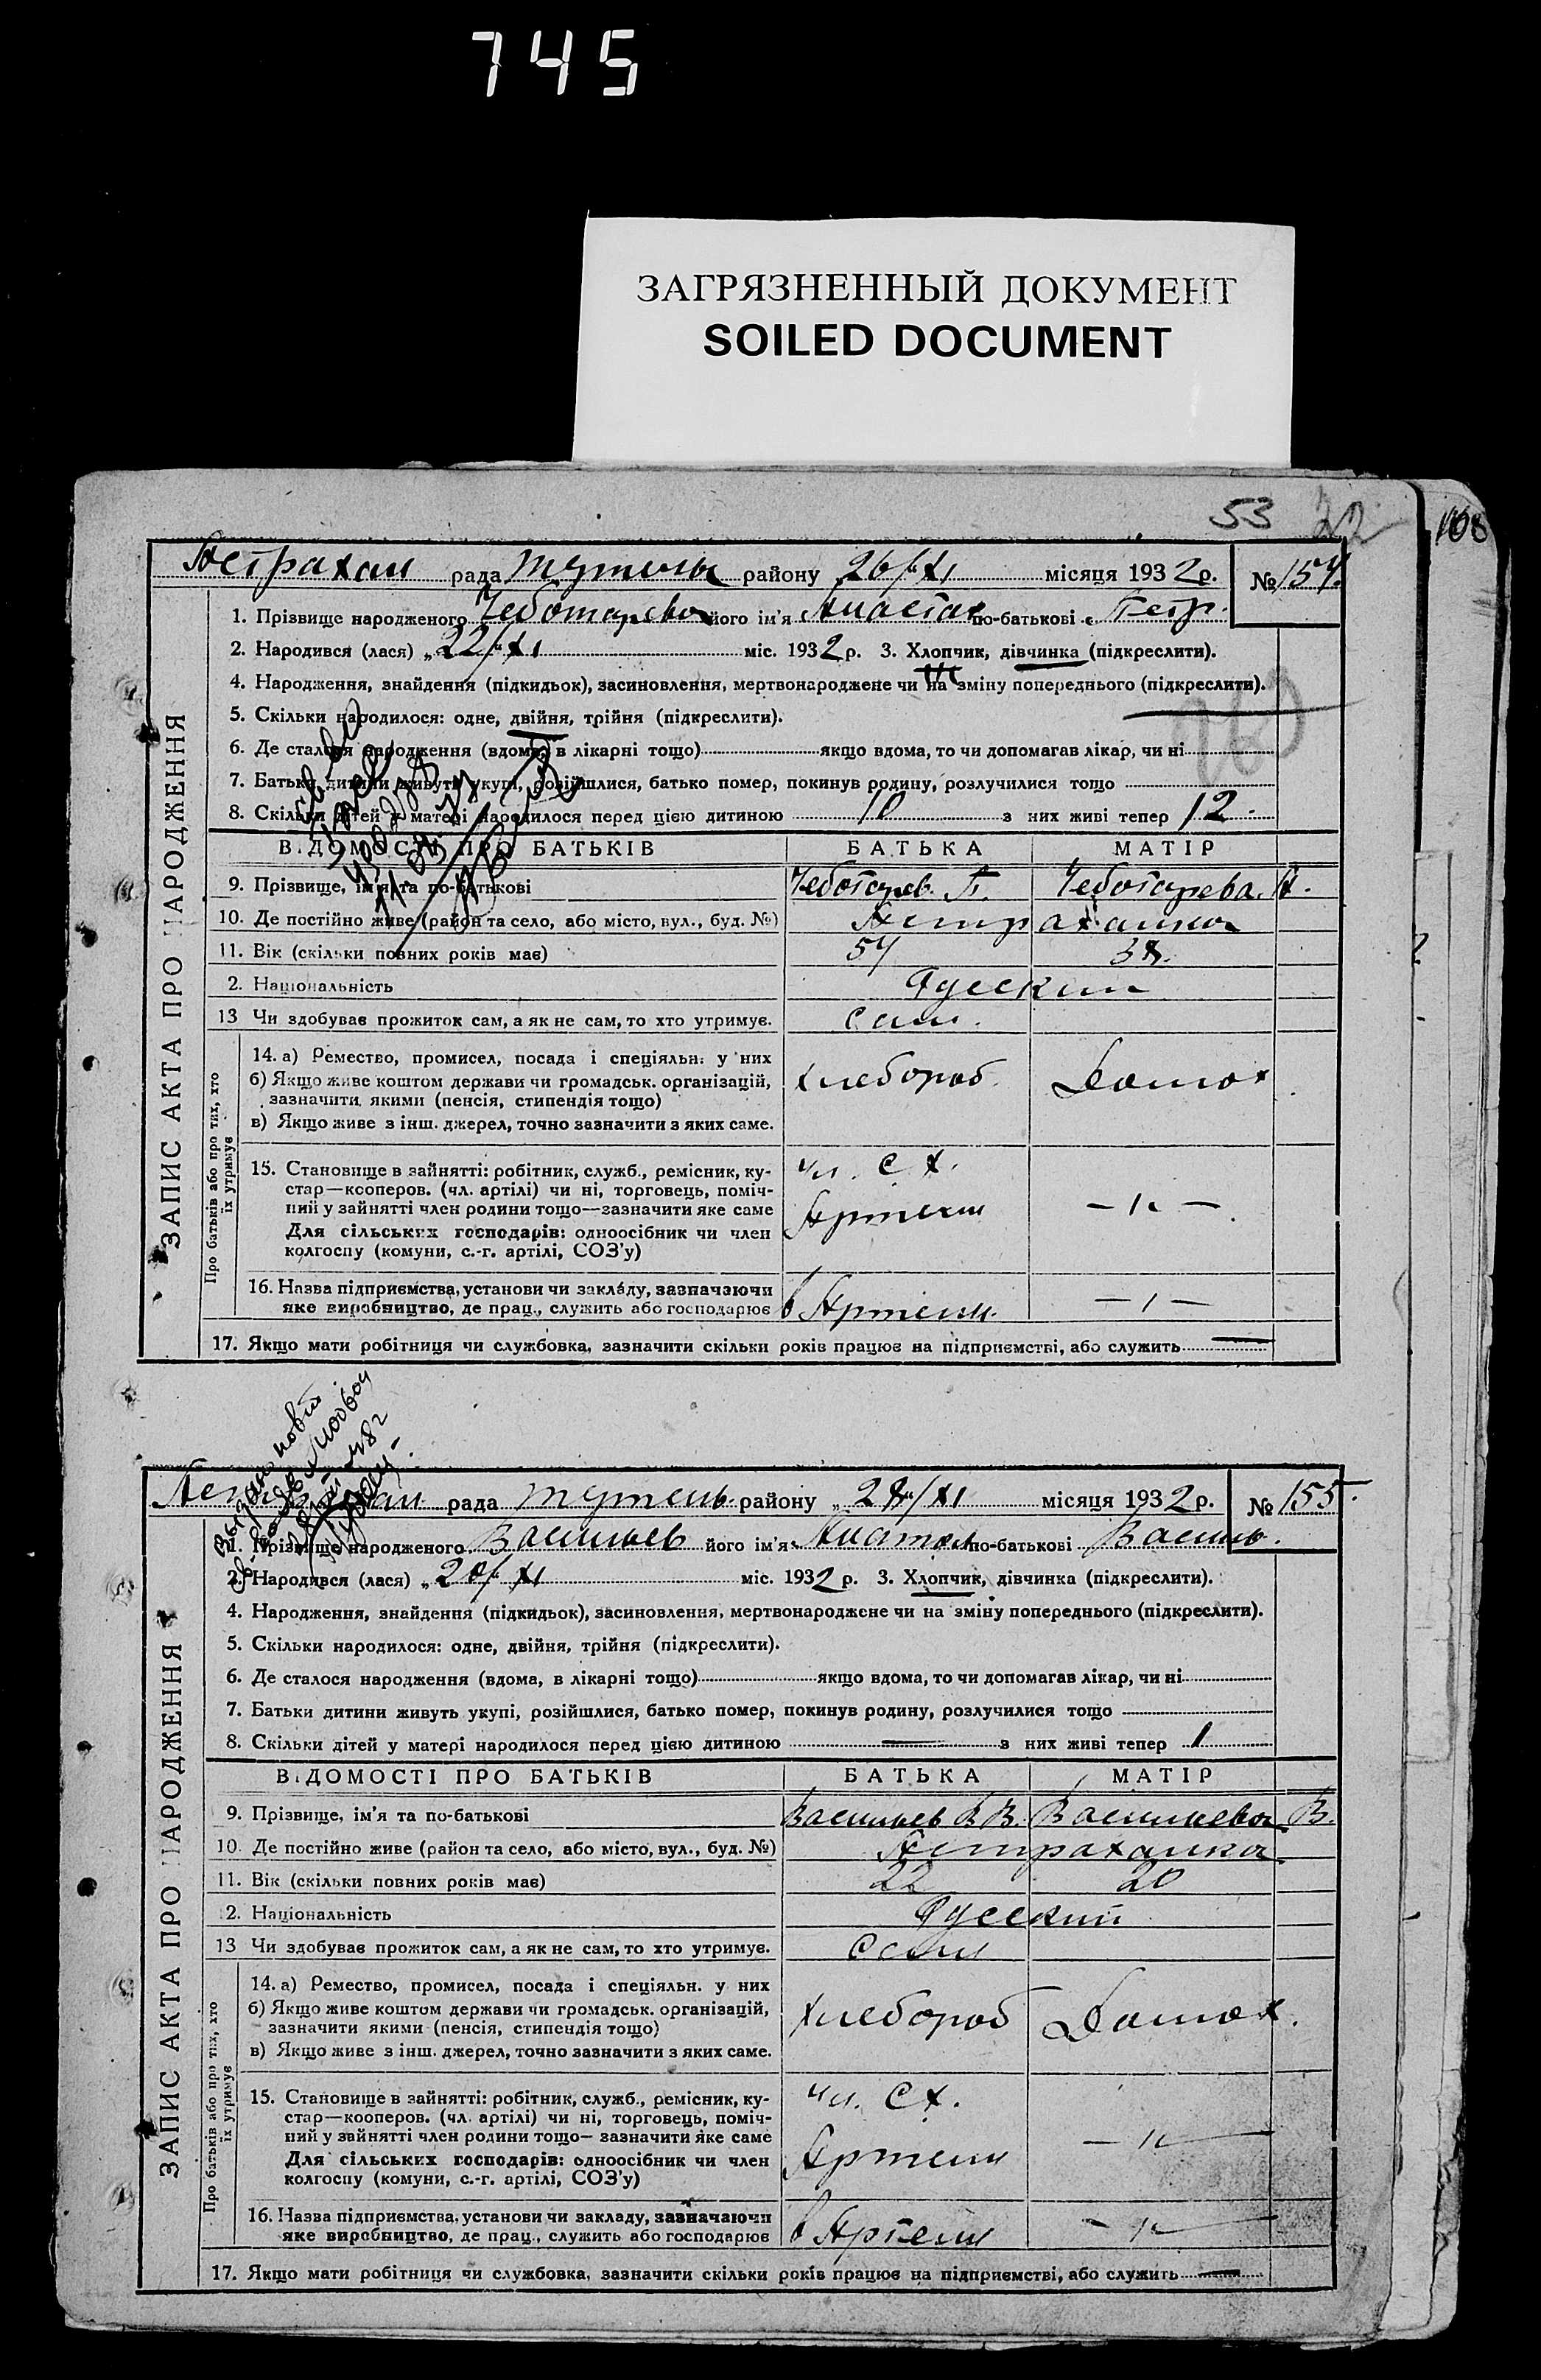 745
ЗАГРЯЗНЕННЫЙ ДОКУМЕНТ
SOILED DOCUMENT
53
108
Астрахан рада району 26/XI місяця 1932 р. № 154
1. Прізвище народженого Чеботарева його ім'я по-батькові Петр.
2. Народився (лася) „22/XI міс. 1932 р. 3. Хлопчик, дівчинка (підкреслити).
4. Народження, знайдення (підкидьок), засиновлення, мертвонароджене чи на зміну попереднього (підкреслити).
5. Скільки народилося: одне, двійня, трійня (підкреслити).
6. Де сталося народження (вдома, в лікарні тощо) якщо вдома, то чи допомагав лікар, чи ні
7. Батьки дитини живуть укупі, розійшлися, батько помер, покинув родину, розлучилися тощо
8. Скільки дітей у матері народилося перед цією дитиною 10 з них живі тепер 12
ВІДОМОСТІ ПРО БАТЬКІВ БАТЬКА МАТІР
9. Прізвище, ім'я та по-батькові Чеботарев. П. Чеботарева. А.
10. Де постійно живе (район та село, або місто, вул., буд. №) Астраханка
11. Вік (скільки повних років має) 54 38.
2. Національність Русский
13 Чи здобував прожиток сам, а як не сам, то хто утримує. сам.
14. а) Ремество, промисел, посада і спеціяльн. у них
б) Якщо живе коштом держави чи громадськ. організацій, хлебороб. Домох
зазначити якими (пенсія, стипендія тощо)
в) Якщо живе з інш. джерел, точно зазначити з яких саме.
15. Становище в зайнятті: робітник, служб., ремісник, ку- чл. с х.
стар—кооперов. (чл. артілі) чи ні, торговець, поміч-
ний у зайнятті член родини тощо—зазначити яке саме Артели — „ —
Для сільських господарів: одноосібник чи член
колгоспу (комуни, с.-г. артілі, СОЗ'у)
16. Назва підприємства, установи чи закладу, зазначаючи
яке виробництво, де прац., служить або господарює в Артели — „ —
17. Якщо мати робітниця чи службовка, зазначити скільки років працює на підприємстві, або служить
ЗАПИС АКТА ПРО НАРОДЖЕННЯ
Про батьків або про тих, хто
їх утримує
рада району „28/XI місяця 1932 р. № 155.
1. Прізвище народженого Васильев його ім'я Анатол по-батькові Василь.
2. Народився (лася) „ XI міс. 1932 р. 3. Хлопчик, дівчинка (підкреслити).
4. Народження, знайдення (підкидьок), засиновлення, мертвонароджене чи на зміну попереднього (підкреслити).
5. Скільки народилося: одне, двійня, трійня (підкреслити).
6. Де сталося народження (вдома, в лікарні тощо) якщо вдома, то чи допомагав лікар, чи ні
7. Батьки дитини живуть укупі, розійшлися, батько помер, покинув родину, розлучилися тощо
8. Скільки дітей у матері народилося перед цією дитиною — з них живі тепер 1
ВІДОМОСТІ ПРО БАТЬКІВ БАТЬКА МАТІР
9. Прізвище, ім'я та по-батькові Васильев В В. Васильева В.
10. Де постійно живе (район та село, або місто, вул., буд. №) Астраханка
11. Вік (скільки повних років має) 22 20
2. Національність Русский
13 Чи здобував прожиток сам, а як не сам, то хто утримує. сами
14. а) Ремество, промисел, посада і спеціяльн. у них
б) Якщо живе коштом держави чи громадськ. організацій, хлебороб Домох.
зазначити якими (пенсія, стипендія тощо)
в) Якщо живе з інш. джерел, точно зазначити з яких саме.
15. Становище в зайнятті: робітник, служб., ремісник, ку- чл. сх.
стар—кооперов. (чл. артілі) чи ні, торговець, поміч-
ний у зайнятті член родини тощо— зазначити яке саме Артели — „ —
Для сільських господарів: одноосібник чи член
колгоспу (комуни, с.-г. артілі, СОЗ'у)
16. Назва підприємства, установи чи закладу, зазначаючи
яке виробництво, де прац., служить або господарює в Артели — „ —
17. Якщо мати робітниця чи службовка, зазначити скільки років працює на підприємстві, або служить
ЗАПИС АКТА ПРО НАРОДЖЕННЯ
Про батьків або про тих, хто
їх утримує